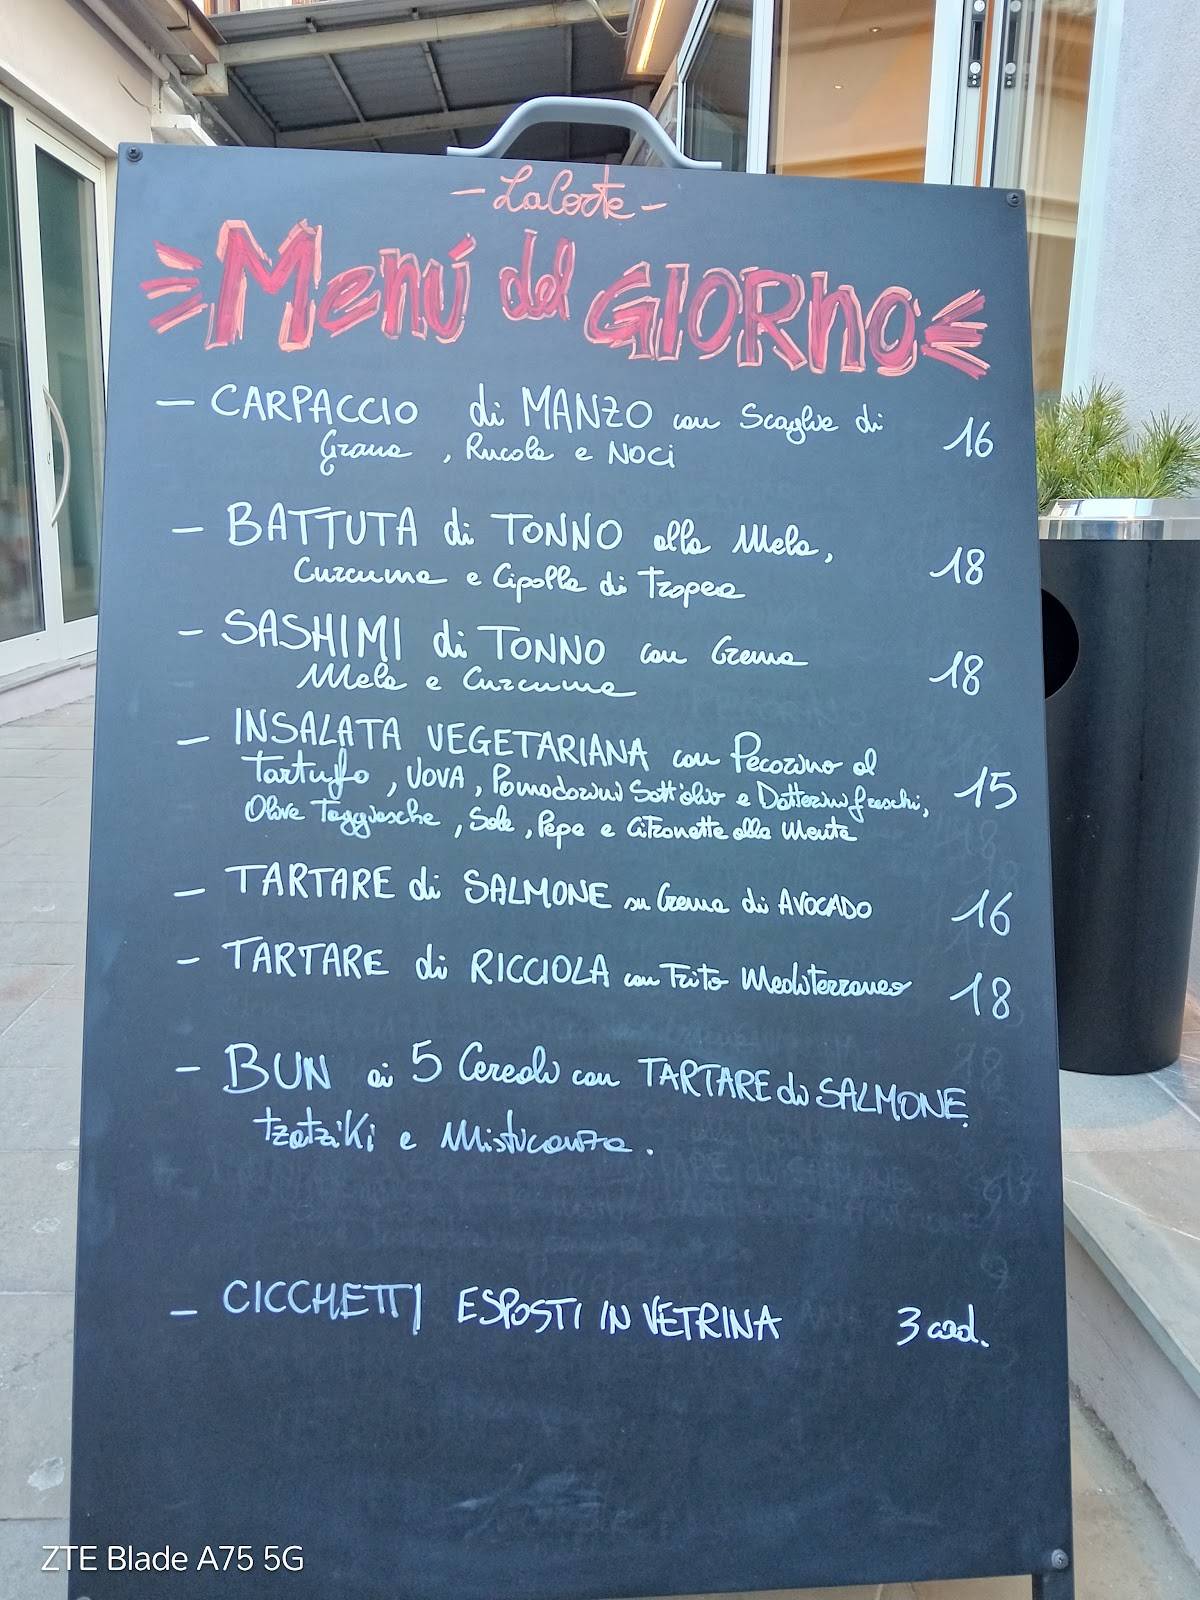 - LaCorte -
Menú del GIORNO
- CARPACCIO di MANZO con Scaglie di 16
Grana, Rucola e NOCI
- BATTUTA di TONNO alla Mela, 18
Curcuma e Cipolla di Tropea
- SASHIMI di TONNO con Crema 18
Mela e Curcuma
- INSALATA VEGETARIANA con Pecorino al 15
Tartufo, UOVA, Pomodorini Sott'olio e Datterini freschi,
Olive Taggiasche, Sale, Pepe e Citronette alla Menta
- TARTARE di SALMONE su Crema di AVOCADO 16
- TARTARE di RICCIOLA con Frito Mediterraneo 18
- BUN ai 5 Cereali con TARTARE di SALMONE
tzatziKi e Misticanza.
- CICCHETTI ESPOSTI IN VETRINA 3 cad.
ZTE Blade A75 5G